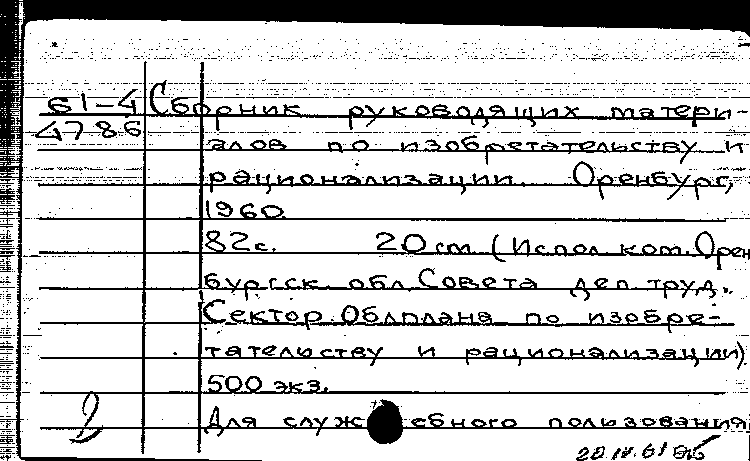 61-4 Сборник руководящих матери-
4786
алов по изобретательству и
рационализации. Оренбург,
1960.
82с. 20 см (Испол. ком. Орен
бургск. обл. Совета деп. труд.
Сектор Облплана по изобре-
тательству и рационализации)
500 экз.
Для служебного пользования
28.IV.61